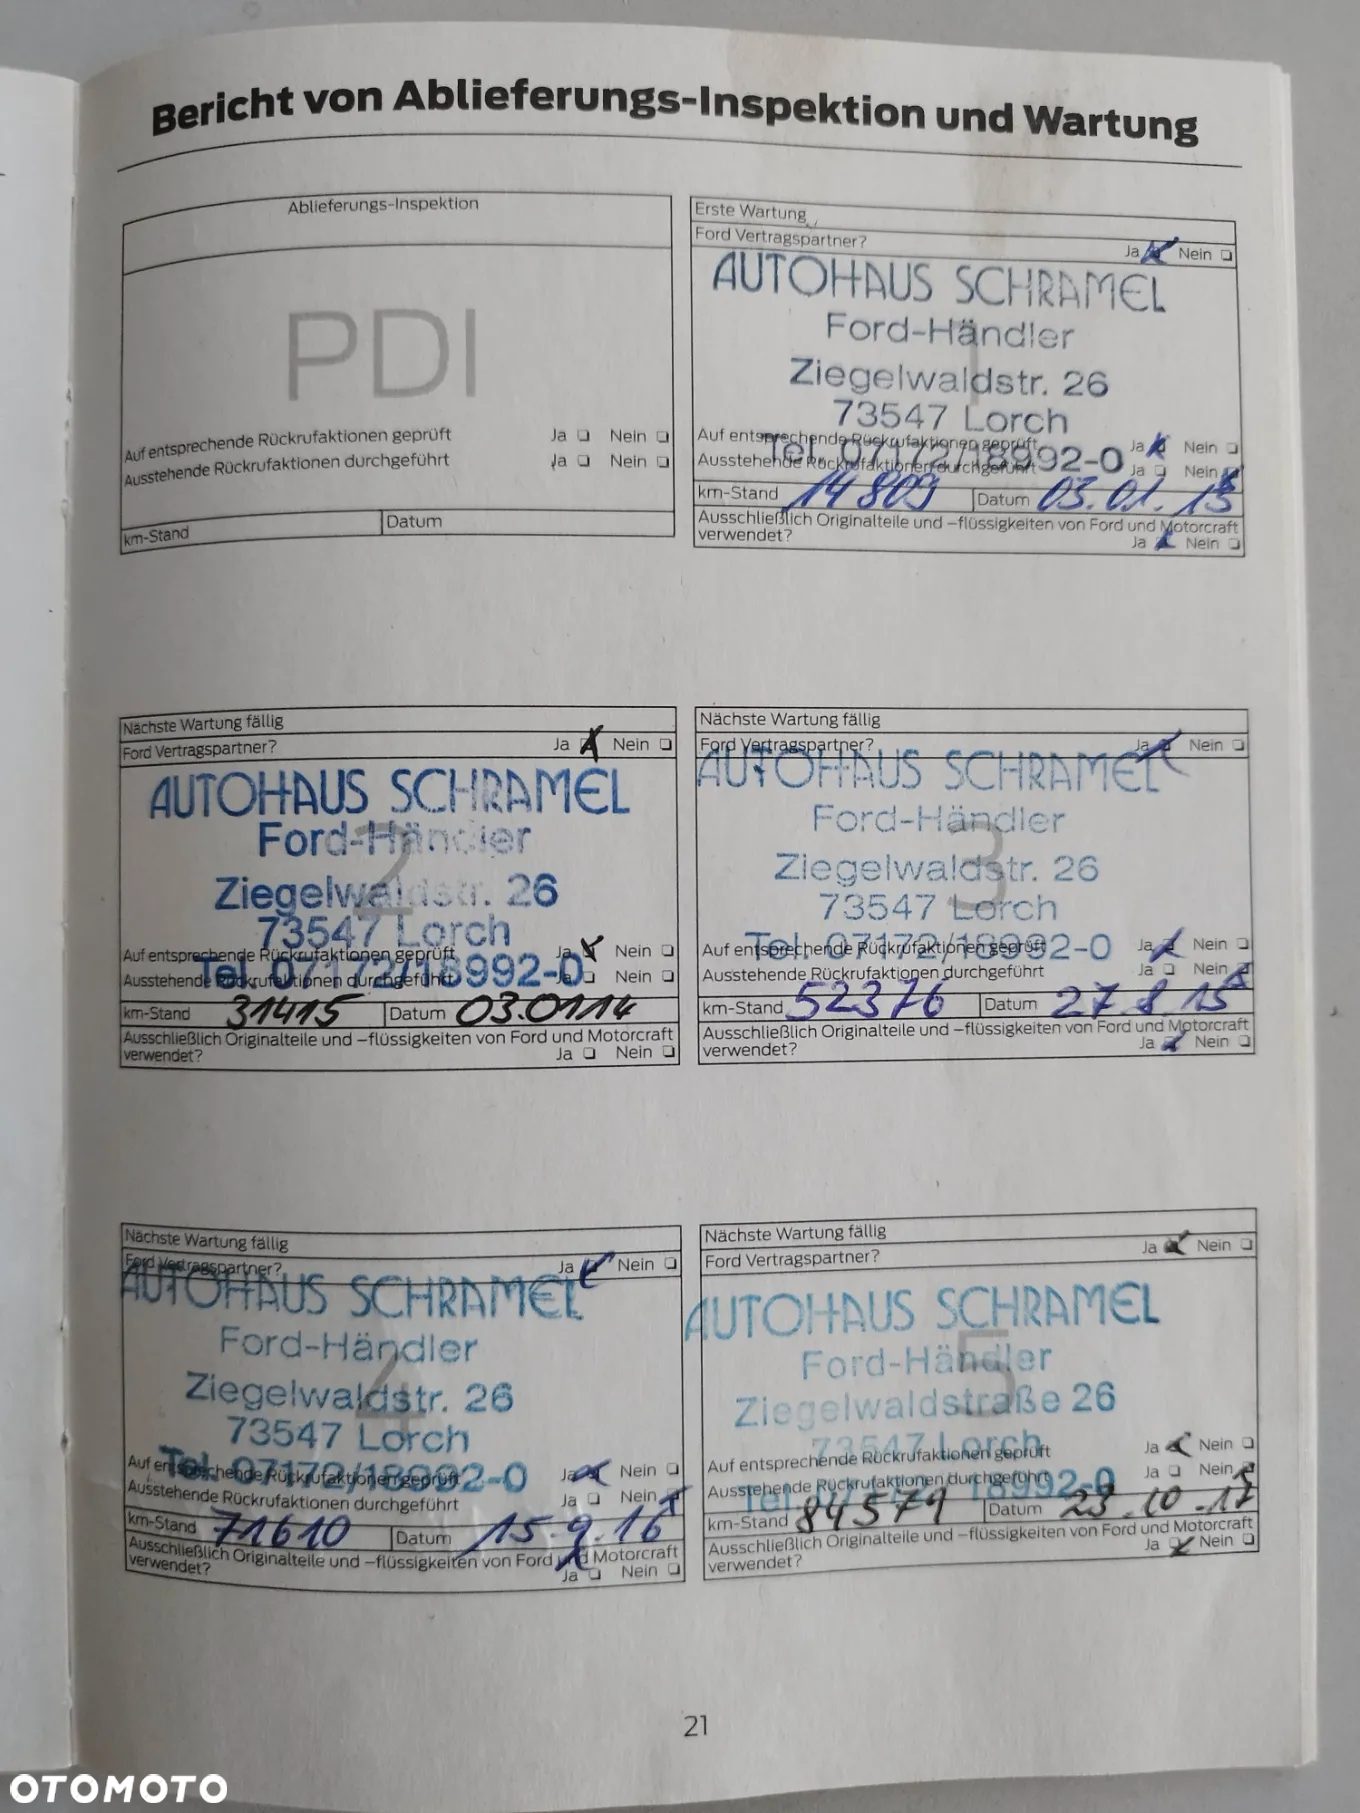 Bericht von Ablieferungs-Inspektion und Wartung
Ablieferungs-Inspektion
PDI
Auf entsprechende Rückrufaktionen geprüft Ja Nein
Ausstehende Rückrufaktionen durchgeführt Ja Nein
km-Stand Datum
Erste Wartung
Ford Vertragspartner?
Ja Nein
AUTOHAUS SCHRAMEL
Ford-Händler
1
Ziegelwaldstr. 26
73547 Lorch
Auf entsprechende Rückrufaktionen geprüft Ja Nein
Tel. 07172/18992-0
Ausstehende Rückrufaktionen durchgeführt Ja Nein
km-Stand 14809 Datum 03.01.13
Ausschließlich Originalteile und -flüssigkeiten von Ford und Motorcraft
verwendet? Ja Nein
Nächste Wartung fällig
Ford Vertragspartner? Ja Nein
AUTOHAUS SCHRAMEL
Ford-Händler
2
Ziegelwaldstr. 26
73547 Lorch
Auf entsprechende Rückrufaktionen geprüft Ja Nein
Tel. 07172/18992-0
Ausstehende Rückrufaktionen durchgeführt Ja Nein
km-Stand 31415 Datum 03.01.14
Ausschließlich Originalteile und -flüssigkeiten von Ford und Motorcraft
verwendet? Ja Nein
Nächste Wartung fällig
Ford Vertragspartner? Ja Nein
AUTOHAUS SCHRAMEL
Ford-Händler
3
Ziegelwaldstr. 26
73547 Lorch
Auf entsprechende Rückrufaktionen geprüft Ja Nein
Tel. 07172/18992-0
Ausstehende Rückrufaktionen durchgeführt Ja Nein
km-Stand 52376 Datum 27.8.15
Ausschließlich Originalteile und -flüssigkeiten von Ford und Motorcraft
verwendet? Ja Nein
Nächste Wartung fällig
Ford Vertragspartner? Ja Nein
AUTOHAUS SCHRAMEL
Ford-Händler
4
Ziegelwaldstr. 26
73547 Lorch
Auf entsprechende Rückrufaktionen geprüft Ja Nein
Tel. 07172/18992-0
Ausstehende Rückrufaktionen durchgeführt Ja Nein
km-Stand 71610 Datum 15.9.16
Ausschließlich Originalteile und -flüssigkeiten von Ford und Motorcraft
verwendet? Ja Nein
Nächste Wartung fällig
Ford Vertragspartner? Ja Nein
AUTOHAUS SCHRAMEL
Ford-Händler
5
Ziegelwaldstraße 26
73547 Lorch
Auf entsprechende Rückrufaktionen geprüft Ja Nein
Ausstehende Rückrufaktionen durchgeführt Ja Nein
Tel. 07172/18992-0
km-Stand 84579 Datum 23.10.17
Ausschließlich Originalteile und -flüssigkeiten von Ford und Motorcraft
verwendet? Ja Nein
21
OTOMOTO